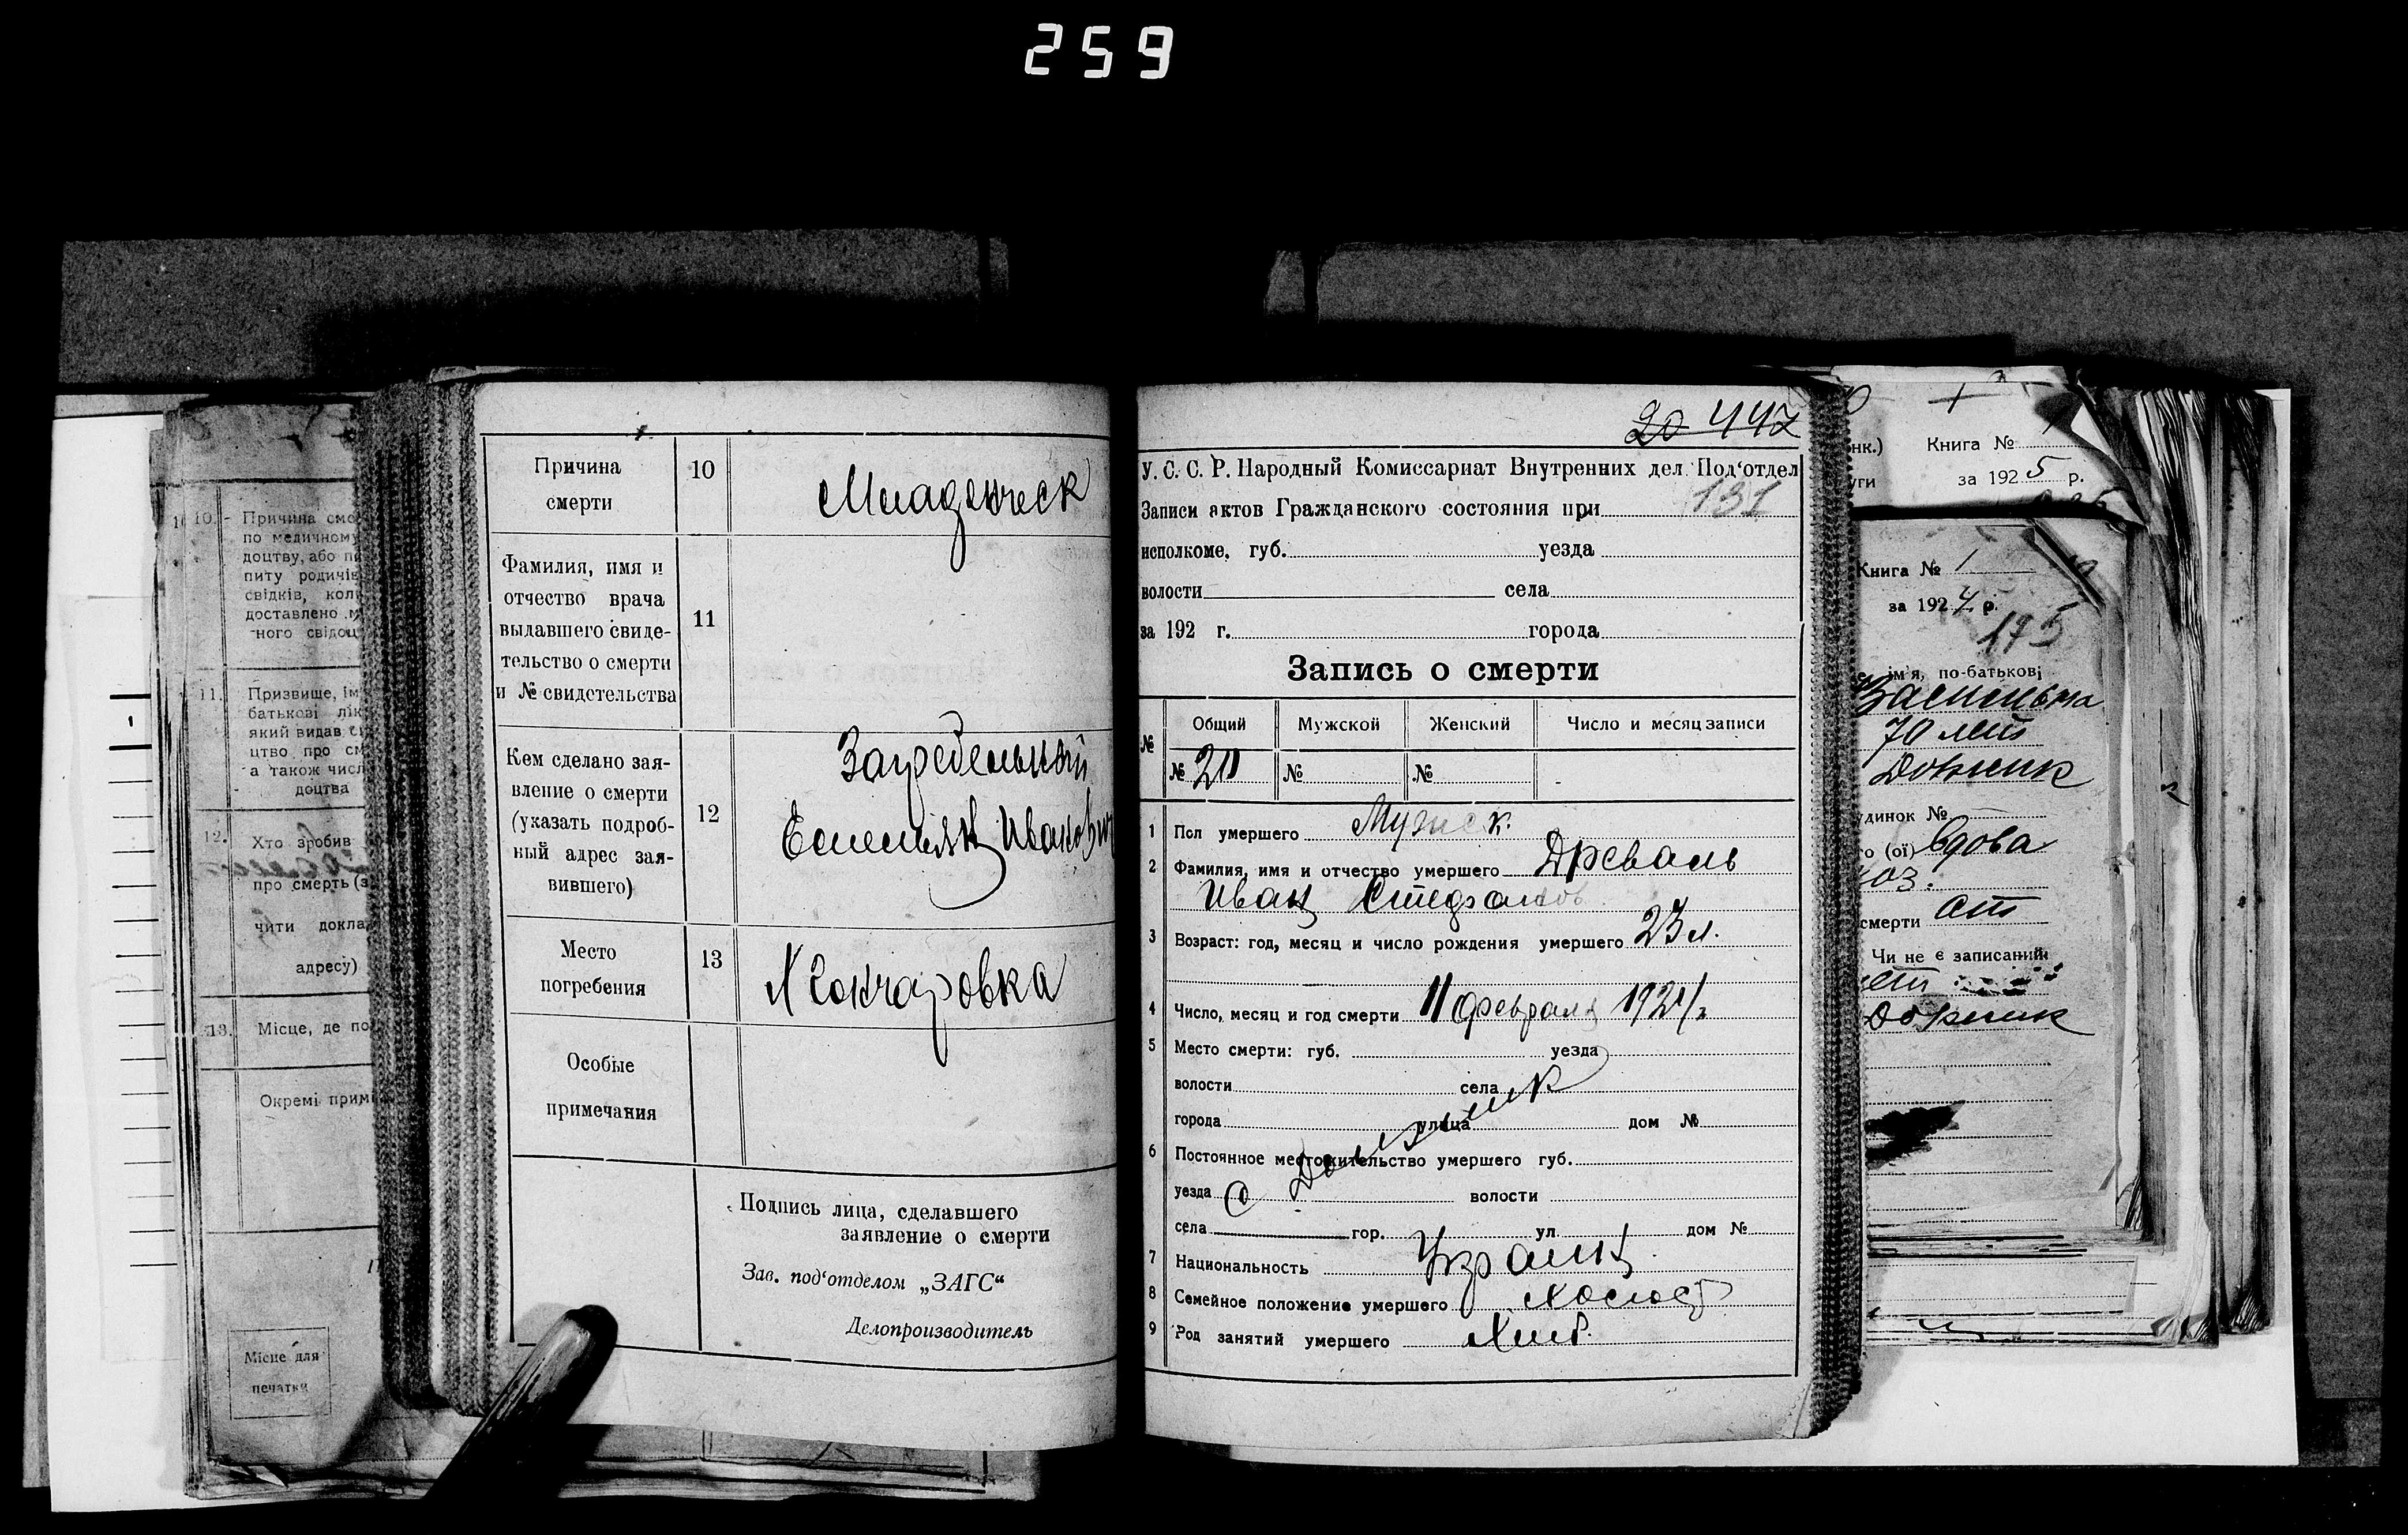 259
Причина
смерти
10
Младенческ
Фамилия, имя и
отчество врача
выдавшего свиде-
тельство о смерти
и № свидетельства
11
Кем сделано зая-
вление о смерти
(указать подроб-
ный адрес зая-
вившего)
12
Запредельный
Емельян Иванович
Место
погребения
13
Х Гончаровка
Особые
примечания
Подпись лица, сделавшего
заявление о смерти
Зав. под‘отделом „ЗАГС“
Делопроизводитель
20 447
У. С. С. Р. Народный Комиссариат Внутренних дел. Под‘отдел
Записи актов Гражданского состояния при 131
исполкоме, губ. уезда
волости села
за 192 г. города
Запись о смерти
№ Общий Мужской Женский Число и месяц записи
№ 20 № №
1 Пол умершего Мужск.
2 Фамилия, имя и отчество умершего Древаль
Иван Стефанов
3 Возраст: год, месяц и число рождения умершего 23 л.
4 Число, месяц и год смерти 11 февраля 1924 г
5 Место смерти: губ. уезда
волости села
города улица дом №
6 Постоянное местожительство умершего губ.
уезда С волости
села гор. ул. дом №
7 Национальность Украин
8 Семейное положение умершего Холост
9 Род занятий умершего Хлеб.
10. Причина смо
по медичному
доцтву, або п
питу родичів
свідків, кол
доставлено м
ного свідоц
11. Призвище, ім
батькові лік
який видав с
цтво про см
а також числ
доцтва
12. Хто зробив
про смерть (з
чити докла
адресу)
13. Місце, де по
Окремі прим
Місце для
печатки
нк.) Книга № 1
уги за 1925 р.
Книга № 1
за 1924 р.
175
ім'я, по-батькові
70 лет
удинок №
о (ої) вдова
смерти
Чи не є записаний